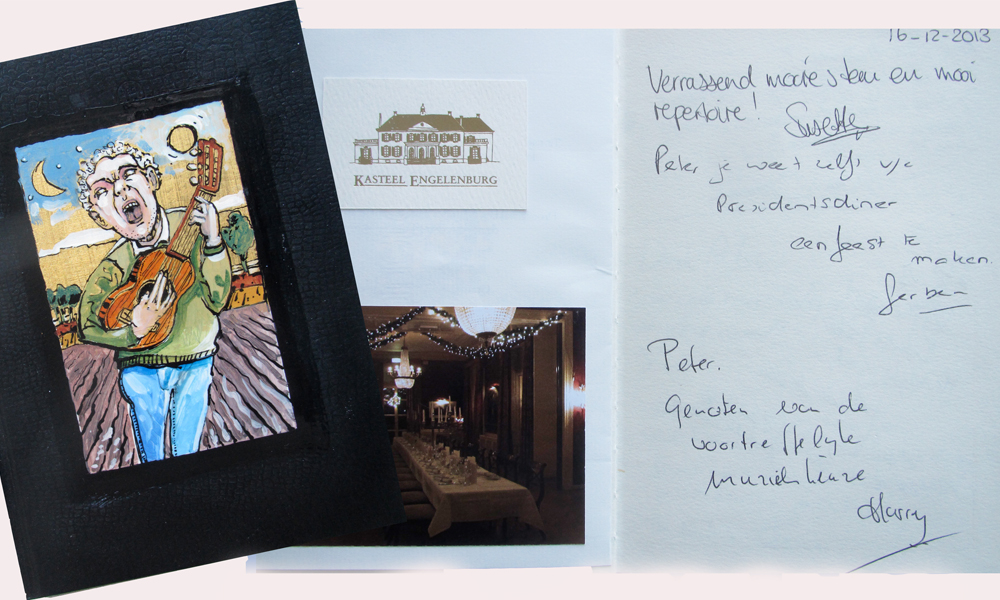 KASTEEL ENGELENBURG
16-12-2013
Verrassend mooie stem en mooi
repertoire!
Susette
Peter je weet zelfs v/e
Presidentsdiner
een feest te
maken.
Gerben
Peter.
Genoten van de
voortreffelijke
muziekkeuze
Harry